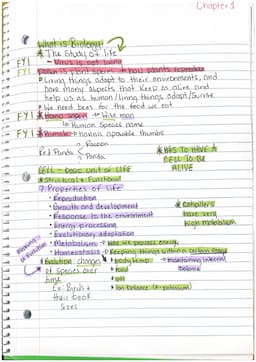 Chapter 1
What is Biology?
* The study of life
FYI - Virus is not living
FYI is plant sperm → how plants reproduce
• Living things adapt to their environments, and
have many aspects that keep us alive and
help us as human/living things adapt/survive
• We need bees for the food we eat
FYI * Homo sapien → Wise man
↳ Human Species name
FYI * Animals: having opposable thumbs
Red Panda < Raccoon
Panda
* HAS TO HAVE A
CELL TO BE
ALIVE
CELL - basic unit of LIFE
* Structural & Functional
7 Properties of life
• Reproduction
• Growth and development
• Response to the environment
• Energy processing
• Evolutionary adaptation
* Caterpillars
have very
high metabolism
• Metabolism: how we process energy
• Homeostasis: keeping things within a certain range
• Evolution: changes
of species over
time
Ex: Birds &
their beak
sizes
• body temp → maintaining internal
balance
• food
• pH
• ion balance (ex: potassium)